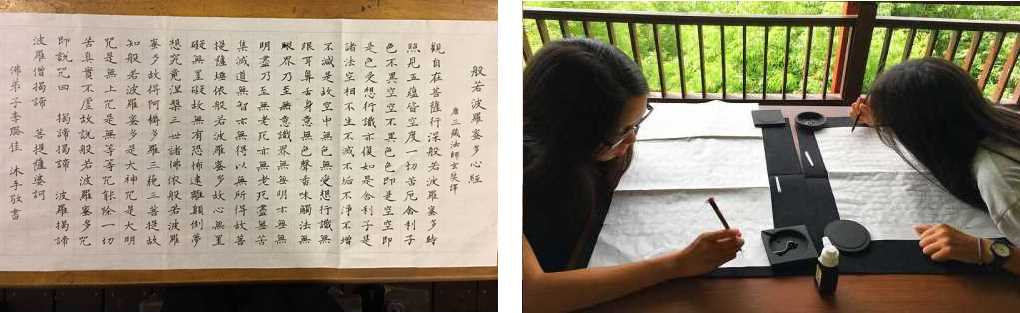 般若波羅蜜多心經
唐三藏法師玄奘譯
觀自在菩薩行深般若波羅蜜多時
照見五蘊皆空度一切苦厄舍利子
色不異空空不異色色即是空空即
是色受想行識亦復如是舍利子是
諸法空相不生不滅不垢不淨不增
不滅是故空中無色無受想行識無
眼耳鼻舌身意無色聲香味觸法無
眼界乃至無意識界無無明亦無無
明盡乃至無老死亦無老死盡無苦
集滅道無智亦無得以無所得故菩
提薩埵依般若波羅蜜多故心無罣
礙無罣礙故無有恐怖遠離顛倒夢
想究竟涅槃三世諸佛依般若波羅
蜜多故得阿耨多羅三藐三菩提故
知般若波羅蜜多是大神咒是大明
咒是無上咒是無等等咒能除一切
苦真實不虛故說般若波羅蜜多咒
即說咒曰 揭諦揭諦 波羅揭諦
波羅僧揭諦 菩提薩婆訶
佛弟子李 佳 沐手敬書